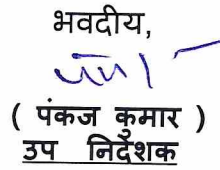 भवदीय,
( पंकज कुमार )
उप निदेशक